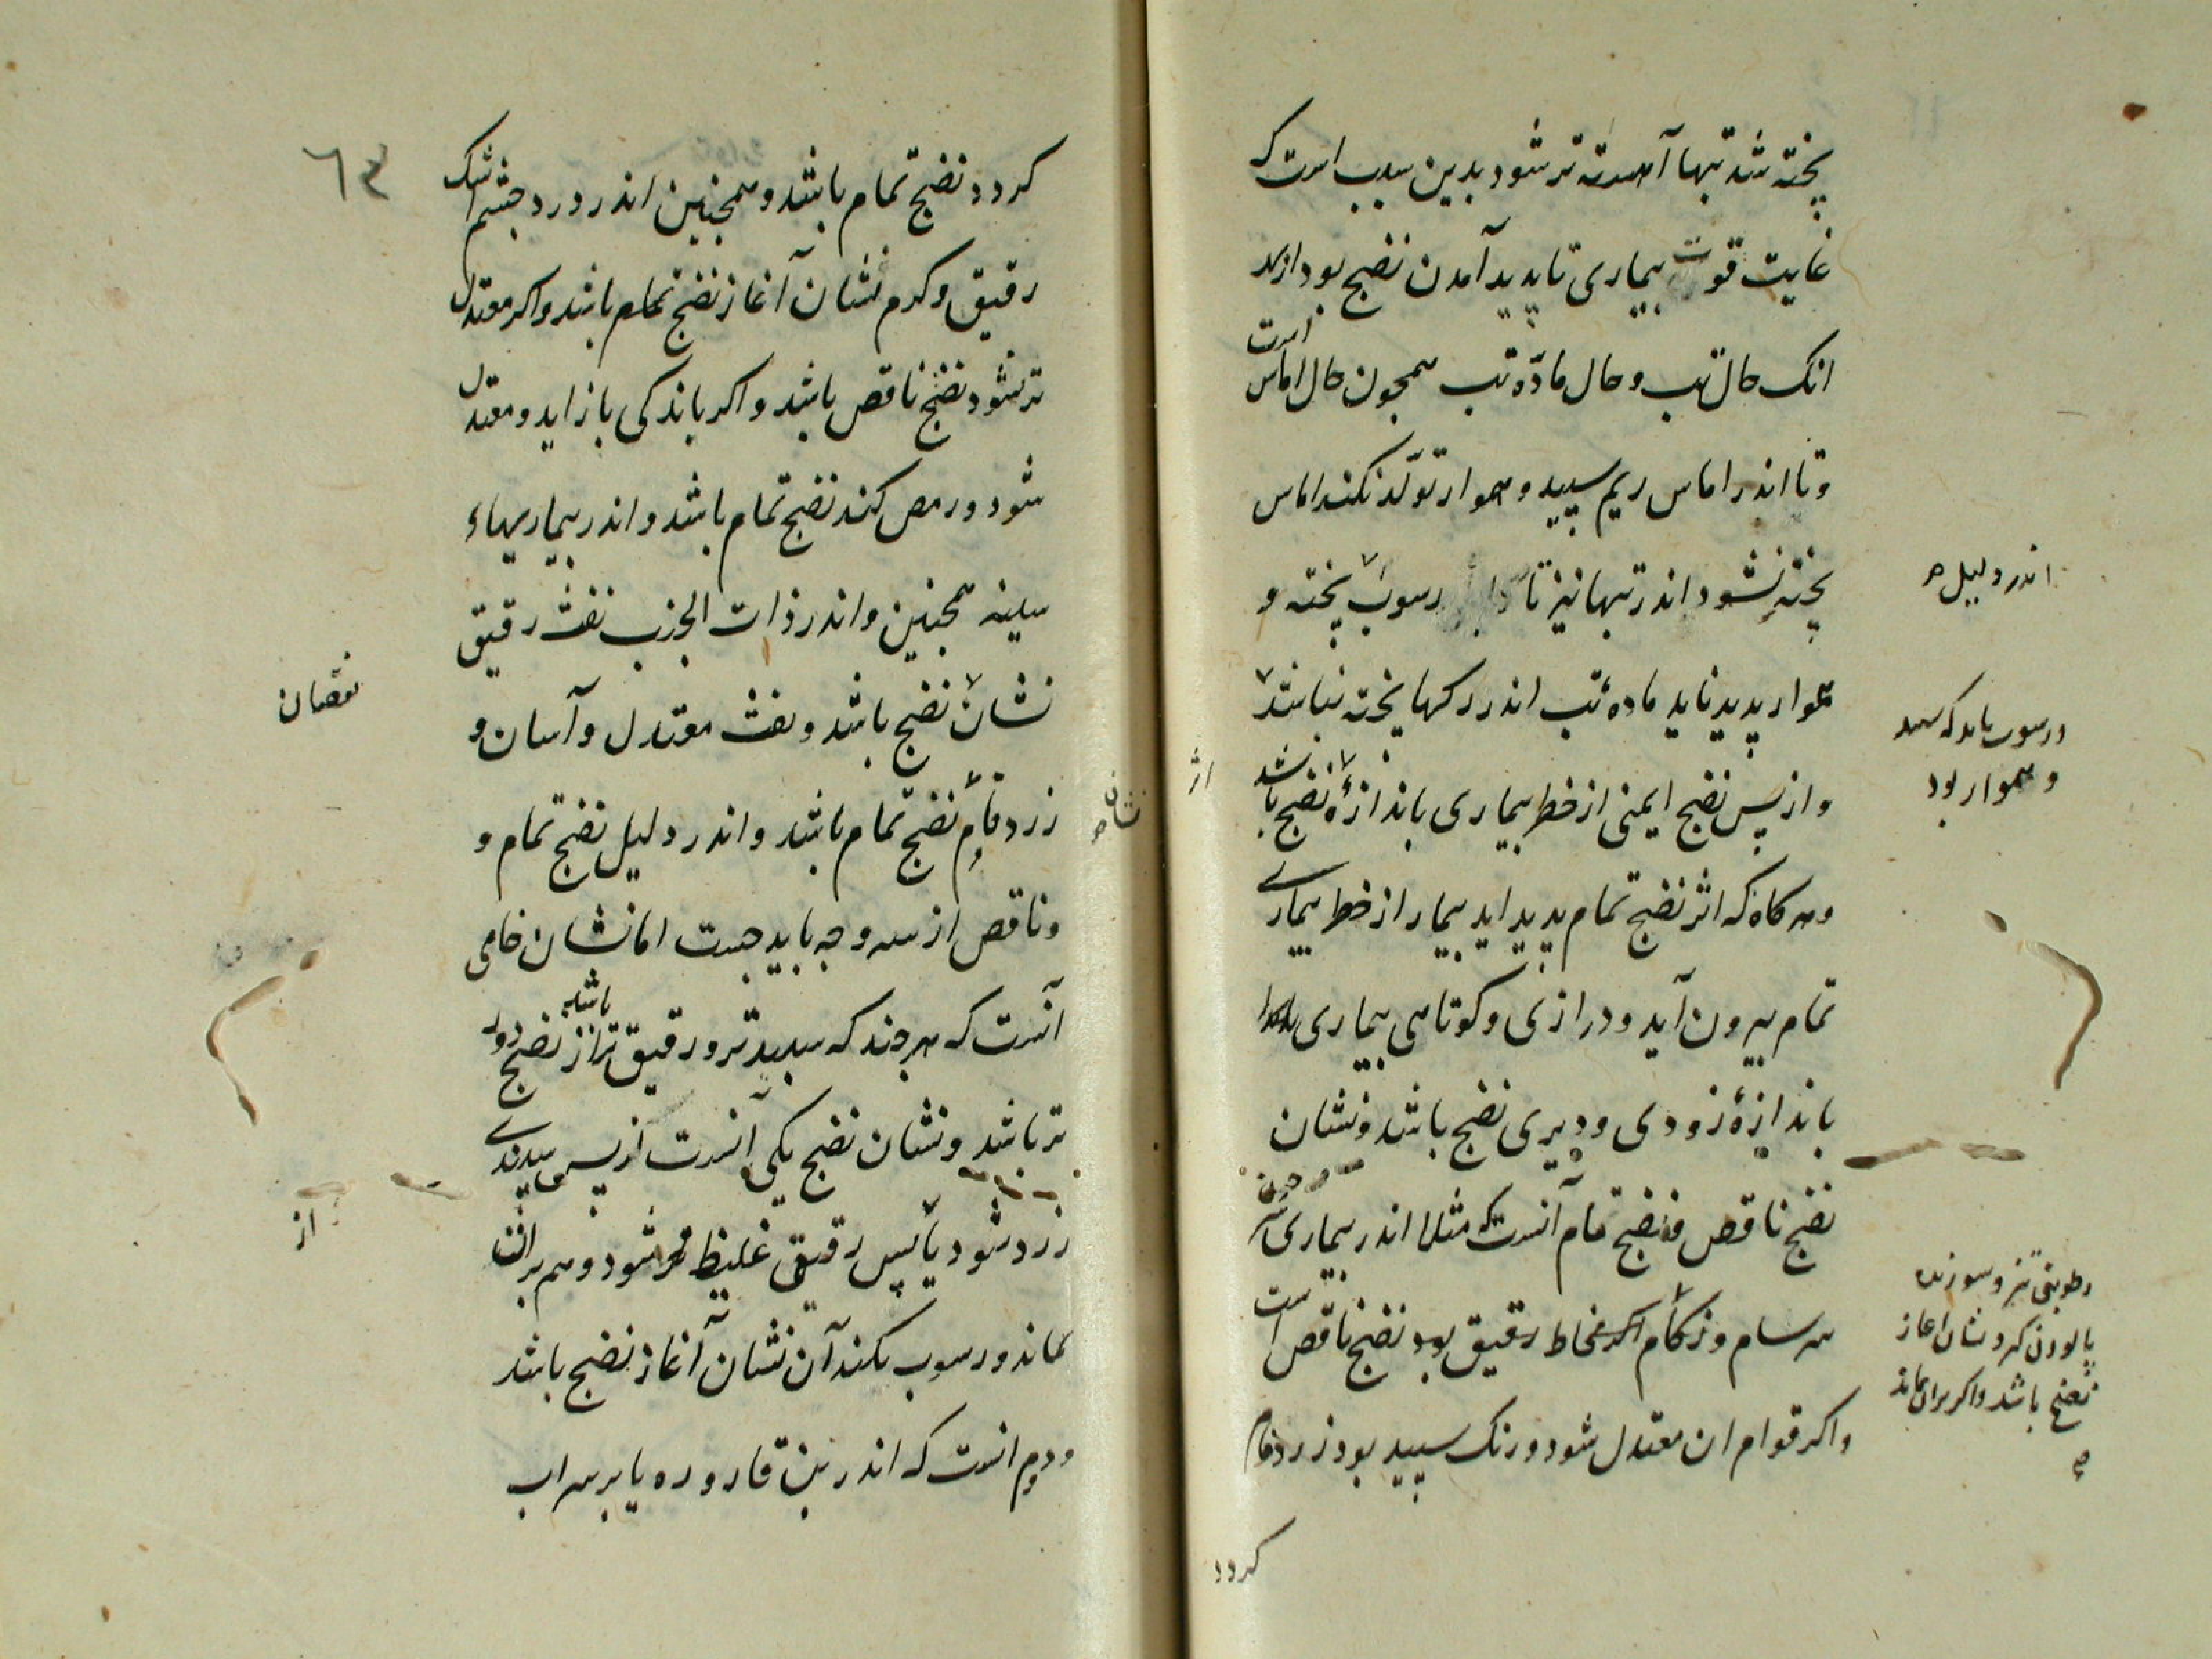 پخته شد تبها آهسته تر شود بدین سبب است که
غایت قوت بیماری تا پدید آمدن نضج بود از بهر
انک حال تب و حال مادّه تب همجون حال اماس است
و تا اندر اماس ریم سپید و هموار تولّد نکند اماس
پخته نشود اندر تبها نیز تا رسوب پخته و
هموار پدید نیاید مادهٔ تب اندر رکها پخته نباشد
و از پس نضج ایمنی از خطر بیماری باندازهٔ نضج باشد
و هر کاه که اثر نضج تمام پدید اید بیمار از خطر بیماری
تمام بیرون آید و درازی و کوتاهی بیماری
باندازهٔ زودی و دیری نضج باشد و نشان
نضج ناقص و نضج تمام آنست که مثلا اندر بیماری
سرسام و زکام اکر مخاط رقیق بود نضج ناقص است
و اکر قوام ان معتدل شود و رنک سپید بود زردفام
کردد
اندر دلیل
و رسوب باید که سپید
و هموار بود
رطوبتی تیز و سوزنده
پالودن کیرد نشان اغاز
نضج باشد و اکر بران بماند
اثر
٦٣
کردد نضج تمام باشد و همجنین اندر درد جشم اشک
رقیق و کرم نشان آغاز نضج تمام باشد و اکر معتدل
تر شود نضج ناقص باشد و اکر باندکی باز اید و معتدل
شود و رمص کند نضج تمام باشد و اندر بیماریهاء
سینه همجنین و اندر ذات الجنب نفث رقیق
نشان نضج باشد و نفث معتدل و آسان و
زردفام نضج تمام باشد و اندر دلیل نضج تمام و
و ناقص از سه وجه باید جست اما نشان خامی
آنست که هر جند که سپیدتر و رقیق تر باشد از نضج دور
تر باشد و نشان نضج یکی آنست از پس سپیدی
زرد شود یا پس رقیقی غلیظ شود و هم بران
بماند و رسوب نکند آن نشان آغاز نضج باشد
و دوم انست که اندر بن قاروره یا بر سر اب
نقصان
نشان
از